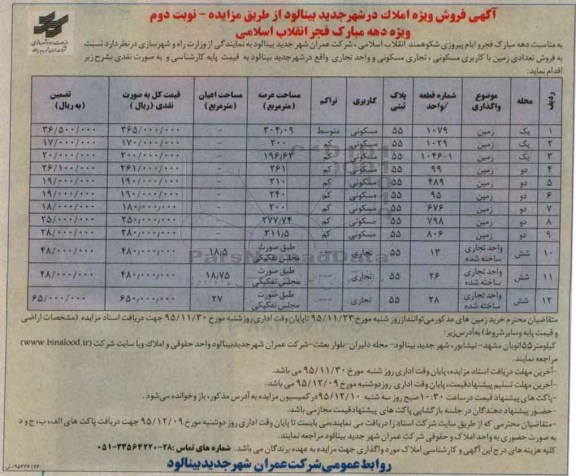 آگهی فروش ویژه املاک درشهرجدید بینالود از طریق مزایده - نوبت دوم
ویژه دهه مبارک فجر انقلاب اسلامی
به مناسبت دهه مبارک فجر و ایام پیروزی شکوهمند انقلاب اسلامی، شرکت عمران شهر جدید بینالود به نمایندگی از وزارت راه و شهرسازی در نظر دارد نسبت
به فروش تعدادی زمین با کاربری مسکونی، تجاری مسکونی و واحد تجاری واقع درشهرجدید بینالود به قیمت پایه کارشناسی و به صورت نقدی بشرح زیر
اقدام نماید:
ردیف محله موضوع واگذاری شماره قطعه /واحد پلاک ثبتی کاربری تراکم مساحت عرصه (مترمربع) مساحت اعیان (مترمربع) قیمت کل به صورت نقدی (ریال) تضمین (به ریال)
۱ یک زمین ۱۰۷۹ ۵۵ مسکونی متوسط ۳۰۴/۰۹ - ۳۶۵/۰۰۰/۰۰۰ ۳۶/۵۰۰/۰۰۰
۲ یک زمین ۱۰۲۹ ۵۵ مسکونی کم ۲۰۰ - ۱۷۰/۰۰۰/۰۰۰ ۱۷/۰۰۰/۰۰۰
۳ یک زمین ۱۰۴۶-۱ ۵۵ مسکونی کم ۱۹۶/۶۳ - ۲۰۰/۰۰۰/۰۰۰ ۲۰/۰۰۰/۰۰۰
۴ دو زمین ۹۹ ۵۵ مسکونی کم ۲۶۱ - ۲۶۱/۰۰۰/۰۰۰ ۲۶/۱۰۰/۰۰۰
۵ دو زمین ۴۸۹ ۵۵ مسکونی کم ۲۱۰ - ۱۹۰/۰۰۰/۰۰۰ ۱۹/۰۰۰/۰۰۰
۶ دو زمین ۹۵ ۵۵ مسکونی کم ۲۴۰ - ۱۹۰/۰۰۰/۰۰۰ ۱۹/۰۰۰/۰۰۰
۷ دو زمین ۶۷۶ ۵۵ مسکونی کم ۲۰۰ - ۱۸۰/۰۰۰/۰۰۰ ۱۸/۰۰۰/۰۰۰
۸ دو زمین ۷۹۸ ۵۵ مسکونی کم ۲۷۷/۷۴ - ۲۵۰/۰۰۰/۰۰۰ ۲۵/۰۰۰/۰۰۰
۹ دو زمین ۸۰۶ ۵۵ مسکونی کم ۳۱۱/۵ - ۲۸۰/۰۰۰/۰۰۰ ۲۸/۰۰۰/۰۰۰
۱۰ شش واحد تجاری ساخته شده ۱۳ ۵۵ تجاری --- طبق صورت مجلس تفکیکی ۱۸/۵ ۴۸۰/۰۰۰/۰۰۰ ۴۸/۰۰۰/۰۰۰
۱۱ شش واحد تجاری ساخته شده ۲۶ ۵۵ تجاری --- طبق صورت مجلس تفکیکی ۱۸/۷۵ ۴۸۰/۰۰۰/۰۰۰ ۴۸/۰۰۰/۰۰۰
۱۲ شش واحد تجاری ساخته شده ۲۸ ۵۵ تجاری --- طبق صورت مجلس تفکیکی ۲۷ ۶۵۰/۰۰۰/۰۰۰ ۶۵/۰۰۰/۰۰۰
متقاضیان محترم خرید زمین های مذکور می توانند از روز شنبه مورخ ۹۵/۱۱/۲۳ تا پایان وقت اداری روز شنبه مورخ ۹۵/۱۱/۳۰ جهت دریافت اسناد مزایده (مشخصات اراضی
و قیمت پایه و سایر شروط) به آدرس زیر:
کیلومتر ۵۵ اتوبان مشهد- نیشابور، شهر جدید بینالود- محله دلبران- بلوار بعثت- شرکت عمران شهرجدید بینالود واحد حقوقی و املاک و یا سایت شرکت (www.binalood.ir)
مراجعه نمایند.
-آخرین مهلت دریافت اسناد مزایده، پایان وقت اداری روز شنبه مورخ ۹۵/۱۱/۳۰ می باشد.
-آخرین مهلت تسلیم پیشنهاد قیمت، پایان وقت اداری روز دوشنبه مورخ ۹۵/۱۲/۰۹ می باشد.
-پاکت های پیشنهاد قیمت در ساعت ۱۰:۳۰ صبح روز سه شنبه ۹۵/۱۲/۱۰ در کمیسیون مزایده به آدرس مذکور، باز و خوانده می شود.
-حضور پیشنهاد دهندگان در جلسه بازگشایی پاکت های پیشنهاد قیمت مجاز می باشد.
-متقاضیان محترمی که از طریق سایت شرکت اسناد را دریافت می نمایند، می بایست تا پایان وقت اداری روز دوشنبه مورخ ۹۵/۱۲/۰۹ جهت دریافت پاکت های الف، ب، ج و د
به صورت حضوری به واحد املاک و حقوقی شرکت عمران شهر جدید بینالود مراجعه نمایند.
کلیه هزینه های درج این آگهی و کارشناسی املاک مورد واگذاری جهت مزایده به عهده برندگان می باشد. شماره های تماس: ۲۸-۳۳۵۶۴۲۲۰-۰۵۱
روابط عمومی شرکت عمران شهر جدید بینالود